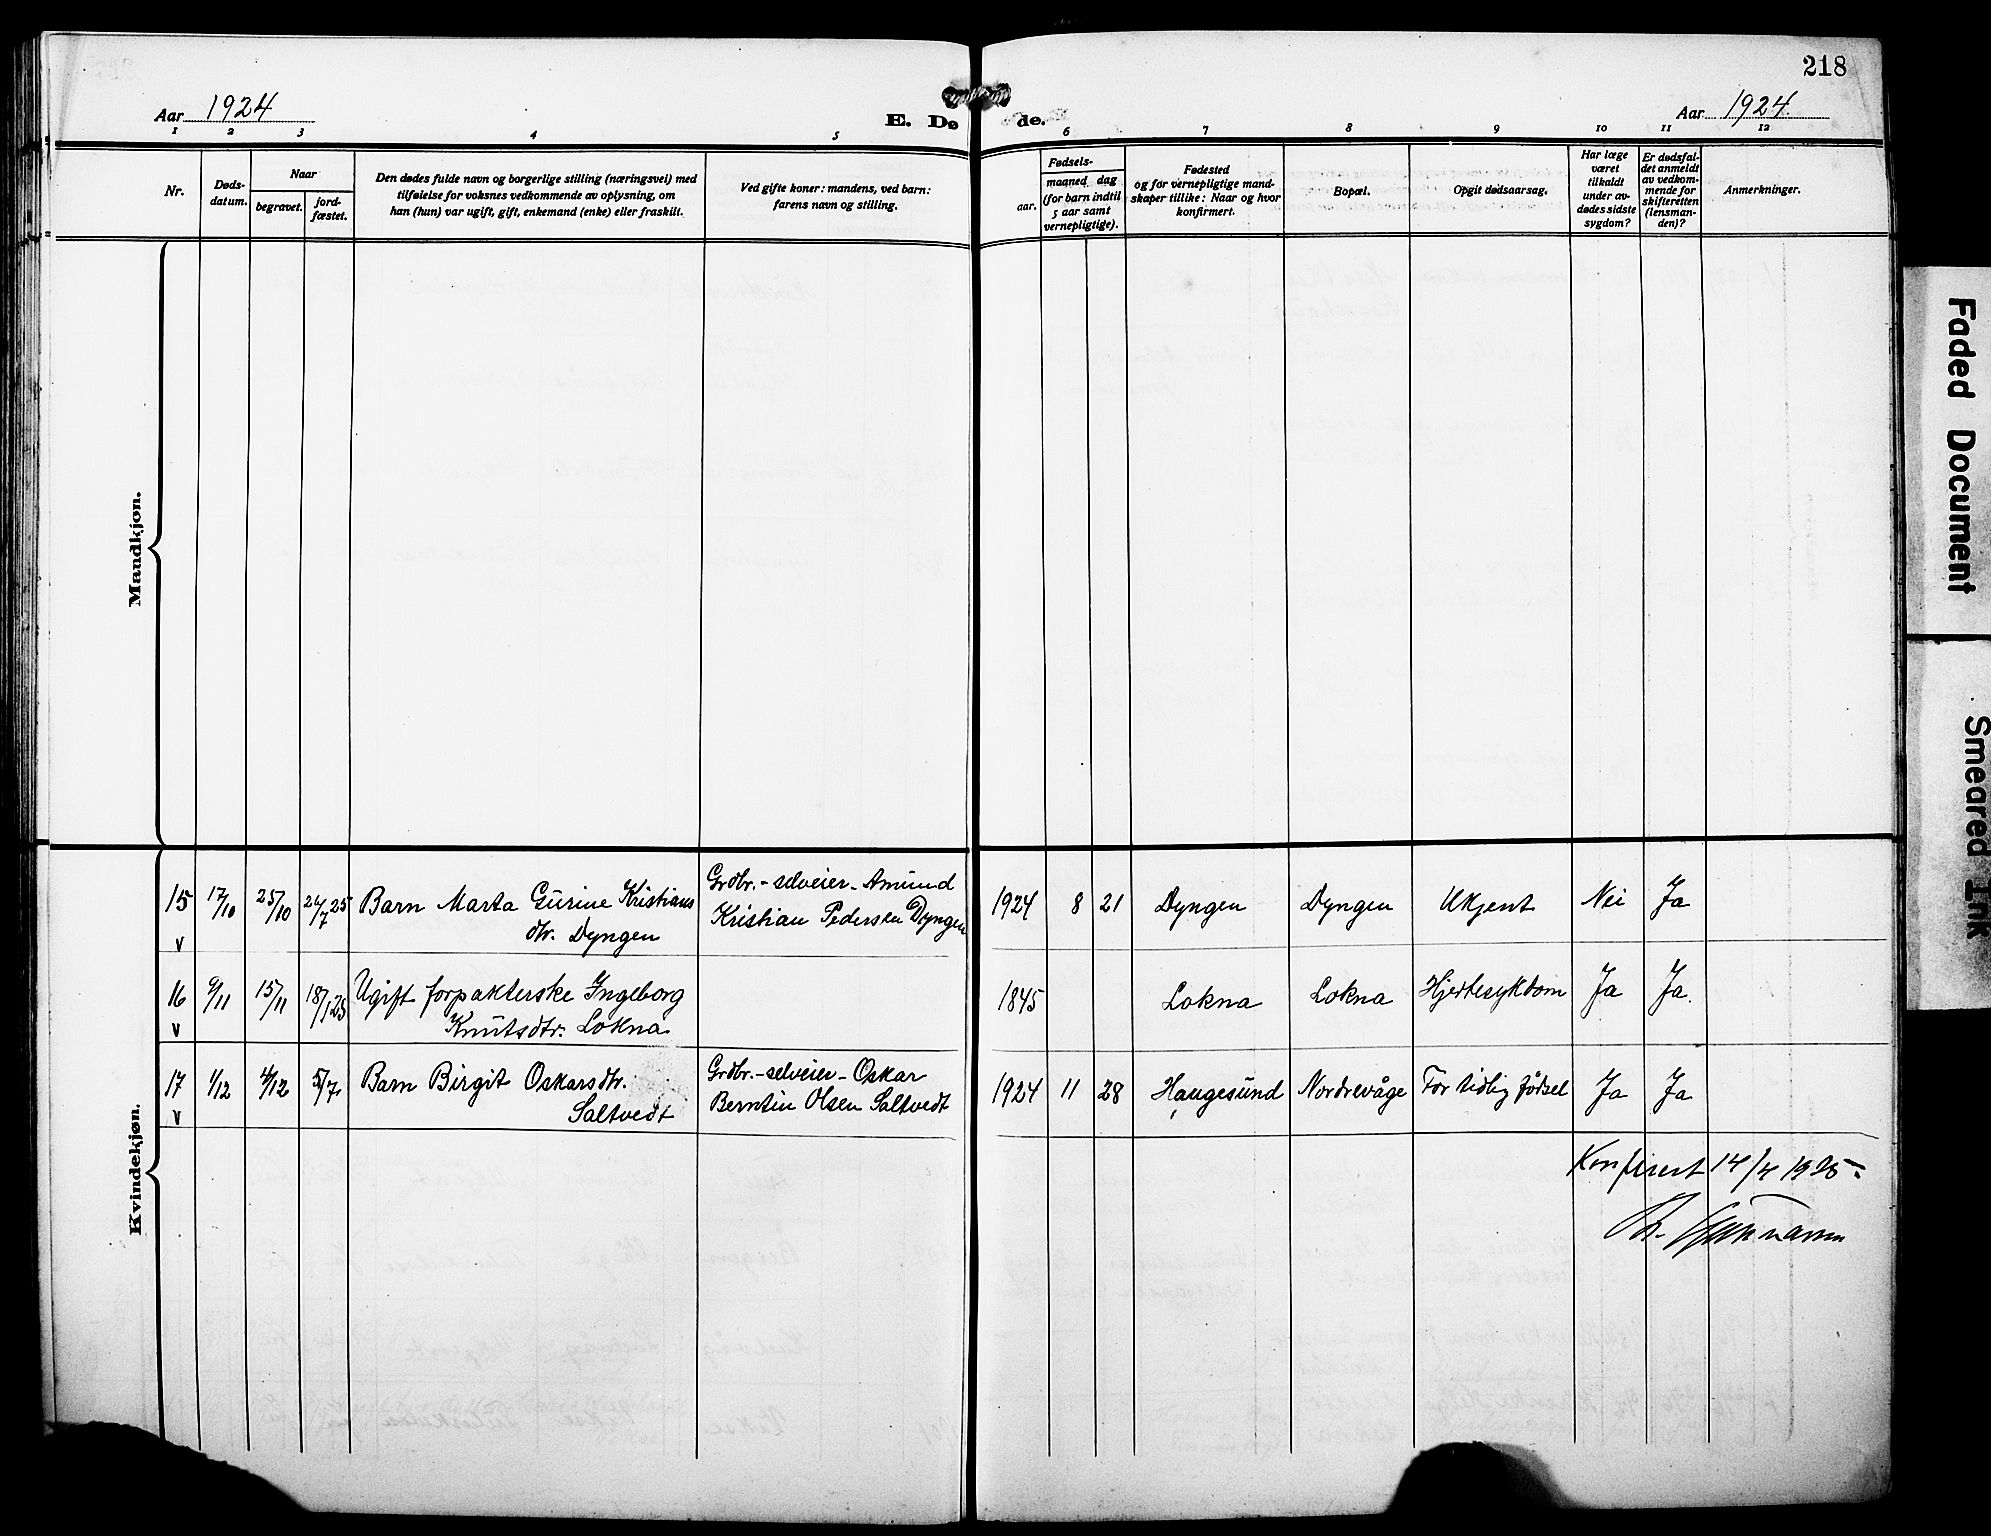 218
Aar 1924
E. Dø de.
Aar 1924.
1 2 3 4 5 6 7 8 9 10 11 12
Nr.
Døds-
datum.
Naar
begravet.
jord-
fæstet.
Den dødes fulde navn og borgerlige stilling (næringsvei) med
tilføielse for voksnes vedkommende av oplysning, om
han (hun) var ugift, gift, enkemand (enke) eller fraskilt.
Ved gifte koner: mandens, ved barn:
farens navn og stilling.
Fødsels-
aar.
maaned dag
(for barn indtil
5 aar samt
vernepligtige).
Fødested
og for vernepligtige mand-
skaper tillike: Naar og hvor
konfirmert.
Bopæl.
Opgit dødsaarsag.
Har læge
været
tilkaldt
under av-
dødes sidste
sygdom?
Er dødsfal-
det anmeldt
av vedkom-
mende for
skifteretten
(lensman-
den)?
Anmerkninger.
Mandkjøn.
Kvindekjøn.
15 17/10 25/10 Barn Marta Gurine Kristians
dtr. Dyngen
Grdbr.-selveier-Amund
Kristian Pedersen Dyngen
1924 8 21 Dyngen Dyngen Ukjent Nei Ja
v
16 9/11 15/11 18/1 25 Ugift forpakterske Ingeborg
Knutsdtr. Lokna
1845 Lokna Lokna Hjertesykdom Ja Ja.
v
17 1/12 4/12 5/7 Barn Birgit Oskarsdtr.
Saltvedt
Grdbr.-selveier-Oskar
Berntin Olsen Saltvedt
1924 11 28 Haugesund Nordrevåge For tidlig fødsel Ja Ja
v
Konferert 14/4 1925
Faded Document
Smeared Ink